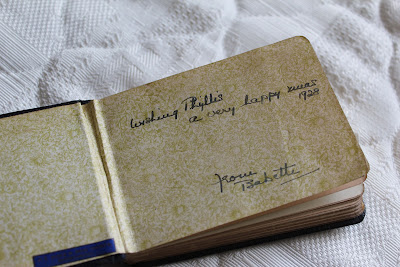 Wishing Phyllis
a very happy xmas
1928
from
Babette